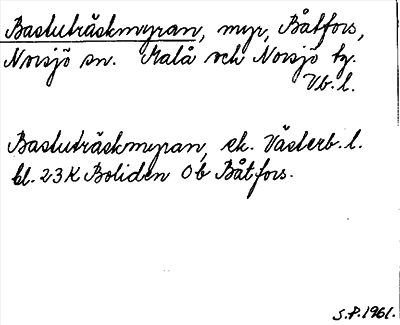 Bastuträskmyran, myr, Båtfors,
Norsjö sn. Malå och Norsjö tg.
Vb. l.
Bastuträskmyran, ek. Västerb. l.
bl. 23 K Boliden 0b Båtfors.
S.P. 1961.